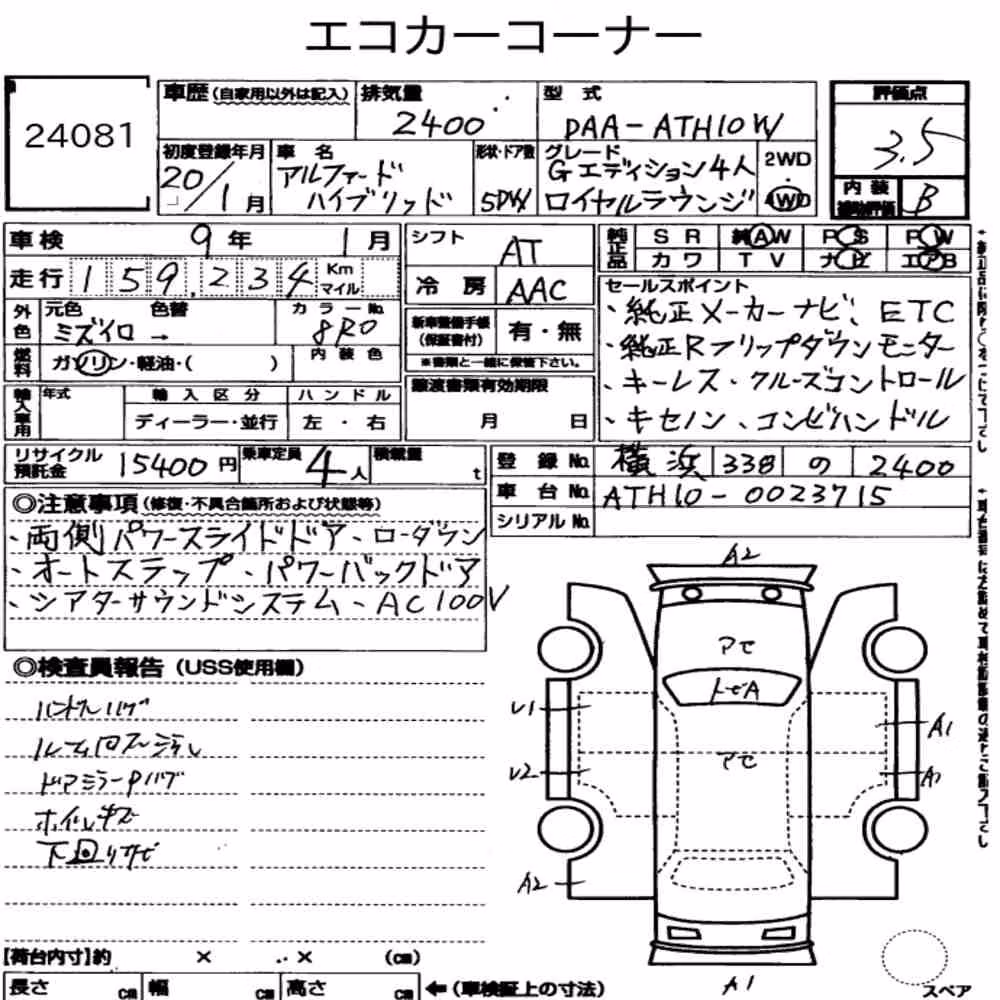 エコカーコーナー
24081
車歴 (自家用以外は記入)
排気量
2400
型式
DAA-ATH10W
評価点
3.5
内装
補助評価
B
初度登録年月
20/1月
車名
アルファード
ハイブリッド
形状・ドア数
5DW
グレード
Gエディション4人
ロイヤルラウンジ
2WD
・
4WD
車検 9年 1月
走行 159,234 Km マイル
外色
元色 色替
ミズイロ →
カラーNo.
8R0
燃料 ガソリン・軽油・( )
内装色
輸入車用
年式
輸入区分
ディーラー・並行
ハンドル
左・右
シフト AT
冷房 AAC
新車整備手帳
(保証書付)
有・無
※書類と一緒に保管下さい。
譲渡書類有効期限
月 日
純正品
SR 純AW PS PW
カワ TV ナビ エアB
セールスポイント
・純正メーカーナビ、ETC
・純正Rフリップダウンモニター
・キーレス・クルーズコントロール
・キセノン、コンビハンドル
リサイクル
預託金
15400円
乗車定員 4人
積載量 t
登録No. 横浜 338 の 2400
車台No. ATH10-0023715
シリアルNo.
◎注意事項 (修復・不具合箇所および状態等)
・両側パワースライドドア、ローダウン
・オートステップ、パワーバックドア
・シアターサウンドシステム、AC100V
◎検査員報告 (USS使用欄)
ドアミラーPハゲ
ホイルキズ
下回りサビ
A2
アセ
トビA
U1
A1
アセ
U2
A1
A2
A1
【荷台内寸】約 × × (cm)
長さ cm 幅 cm 高さ cm ← (車検証上の寸法)
スペア